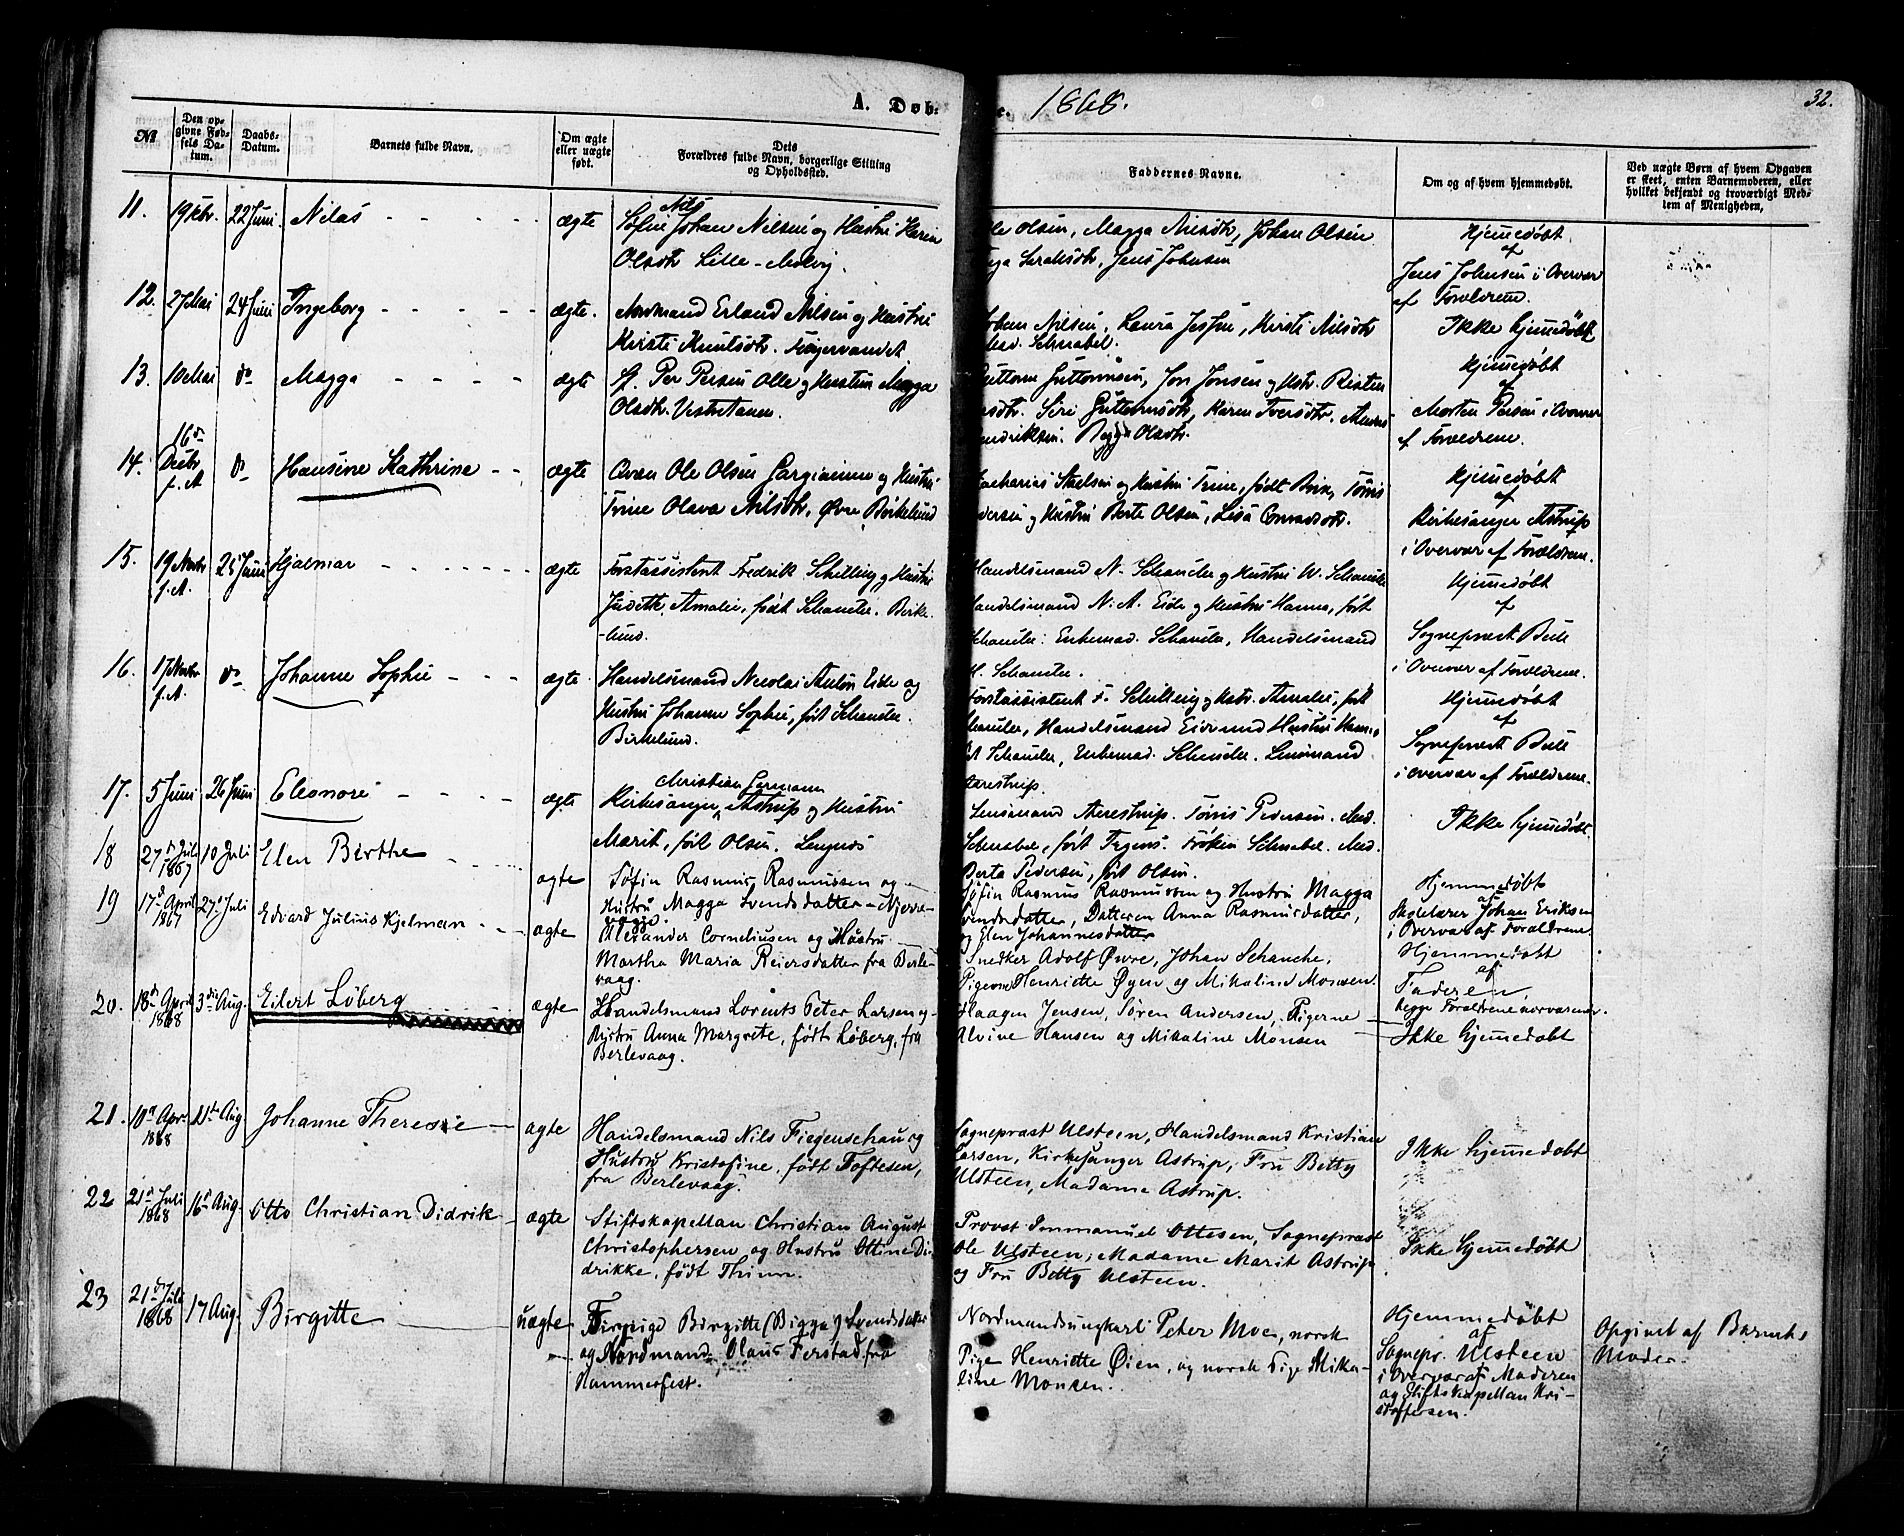 A. Døb.
1868.
32.
№
Den op-
givne Fød-
sels Da-
tum.
Daabs-
Datum.
Barnets fulde Navn.
Om ægte
eller uægte
født.
Dets
Forældres fulde Navn, borgerlige Stilling
og Opholdssted.
Faddernes Navne.
Om og af hvem hjemmedøbt.
Ved uægte Børn af hvem Opgaven
er skeet, enten Barnemoderen, eller
hvilket bekjendt og troværdigt Med-
lem af Menigheden,
11.
22 Juni.
Nilas
ægte
Nils
Søfin Johan Nilsen og Hustru Karen
Olsdtr Lille-
Ole Olsen, Magga Nilsdtr, Johan Olsen
Inga Sarasdtr, Jens Johnsen
Hjemmedøbt
af
Jens Johnsen i Overvær
af Forældrene.
12.
27 Mai
24 Juni
Ingeborg
ægte.
Nordmand Erland Nilsen og Hustru
Kirsti Knutsdtr.
Johan Nilsen, Laura Jessen, Kirsti Nilsdtr
Mad. Schnabel.
Ikke hjemmedøbt
13.
10 Mai
do
Magga
ægte
Sf. Per Persen Olle og Hustru Magga
Olsdtr. Vestre Tanen.
Guttorm Guttormsen, Jon Jonsen og Hstr. Risten
Siri Guttormsdtr, Karen Iversdtr.
Hendriksen. Bigga Olsdtr.
Hjemmedøbt
af
Morten Persen i Overvær
af Forældrene.
14.
16 d
Decbr
f.A
do
Hansine Kathrine
ægte
Qvæn Ole Olsen og Hustru
Trine Olava Nilsdtr, Øvre Birkelund
Zacharias og Hustru Trine, født Brix, Tønis
Pedersen og Hustru Berte Olsen, Lisa Conradsdtr.
Hjemmedøbt
af
Kirkesanger Astrup
i Overvær af Forældrene.
15.
19 Novbr
f.A.
25 Juni
Hjalmar
ægte
Forstassistent Fredrik Schilling og Hustru
Judith Amalie, født Schanche. Birke-
-lund.
Handelsmand N. Schanche og Hustru W. Schanche
Handelsmand N. A. Eide og Hustru Hanna, født
Schanche: Enkemad. Schanche, Handelsmand
H. Schanche.
Hjemmedøbt
af
Sognepræst Bull
i Overvær af Forældrene.
16.
17 Novbr
f.A.
do
Johanne Sophie
ægte
Handelsmand Nicolai Anton Eide og
Hustru Johanne Sophie, født Schanche.
Birkelund.
Forstassistent F. Schilling og Hstr. Amalie, født
Schanche, Handelsmand Eide med Hustru Hanna,
født Schanche, Enkemad. Schanche. Lensmand
Aarestrup.
Hjemmedøbt
af
Sognepræst Bull
i Overvær af Forældrene.
17.
5 Juni
26 Juni
Eleonore
ægte
Christian Lormann
Kirkesanger Astrup og Hustru
Marit, født Olsen. Langnæs
Lensmand Aarestrup. Tønis Pedersen. Mad.
Schnabel, født Frøken Schnabel. Mad.
Berta Pedersen, født Olsen.
Ikke hjemmedøbt.
18
27 d Juli
1867
10 Juli
Elen Birthe
ægte
Søfin Rasmus Rasmussen og
Hustru Magga Svendsdatter
Søfin Rasmus Rasmussen og Hustru Magga
Svendsdatter, Datteren Anna Rasmusdatter,
og Elen Johannesdatter
Hjemmedøbt
af
Skolelærer Johan Eriksen
i Overvær af Forældrene.
19
17 d April
1867
27 d Juli
Edvard Julius Kjelman
ægte
Alexander Corneliusen og Hustru
Martha Maria Reiersdatter fra Berle-
vaag.
Snedker Adolf Øwre, Johan Schanche,
Pigerne Henriette Øyen og Mikaline Monsen.
Hjemmedøbt
af
Faderen
begge Forældrene nærværende.
20.
18 d April
1868
3 die Aug.
Eilert Løberg
ægte
Handelsmand Lorents Peter Larsen og
Hustru Anna Margrete, født Løberg, fra
Berlevaag.
Haagen Jensen, Søren Andersen, Pigerne
Alvine Hansen og Mikaline Monsen
Ikke hjemmedøbt
21.
10 d Apr.
1868
11 d Aug
Johanne Theresie
ægte
Handelsmand Nils Figenschau og
Hustru Kristofine, født Toftesen,
fra Berlevaag.
Sognepræst Ulsteen, Handelsmand Kristian
Larsen, Kirkesanger Astrup, Fru Betty
Ulsteen, Madame Astrup.
Ikke hjemmedøbt
22
21 d Juli
1868
16 d Aug.
Otto Christian Didrik
ægte
Stiftskapellan Christian August
Christophersen og Hustru Ottine Di-
drikke, født Thinn.
Provst Immanuel Ottesen, Sognepræst
Ole Ulsteen, Madame Marit Astrup
og Fru Betty Ulsteen.
Ikke hjemmedøbt
23
21 d Juli
1868
17 Aug.
Birgitte
uægte
Finpige Birgitte (Bigga) Svendsdatter
og Nordmand Olaus Ferstad fra
Hammerfest.
Nordmandsungkarl Peter Moe, norsk
Pige Henriette Øien, og norsk Pige Mika-
line Monsen.
Hjemmedøbt
af
Sognepr. Ulsteen
i Overvær af Moderen
og Stiftskapellan Kri-
stoffersen.
Opgivet af Barnets
Moder.